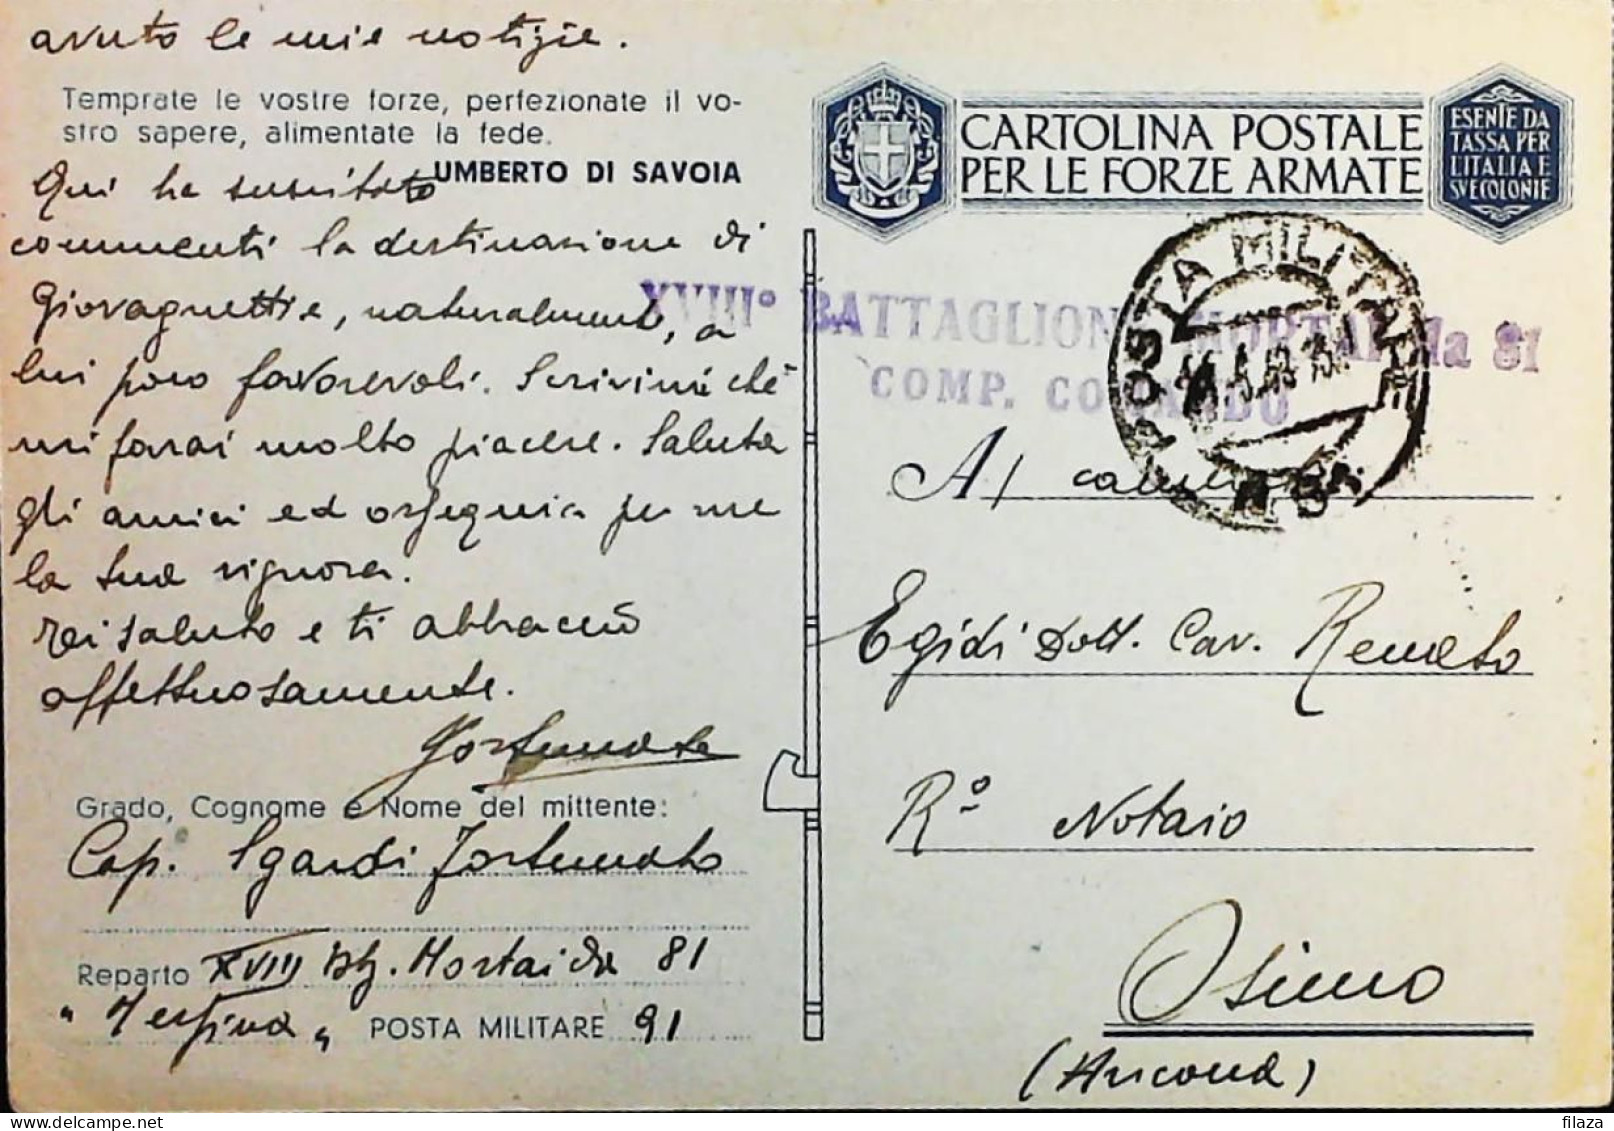 avuto le mie notizie.
Temprate le vostre forze, perfezionate il vo-
stro sapere, alimentate la fede.
UMBERTO DI SAVOIA
Qui ha suscitato
commenti la destinazione di
Giovagnetti e, naturalmente, a
lui poco favorevoli. Scrivimi chè
mi farai molto piacere. Saluta
gli amici ed ossequia per me
la tua signora.
Ti saluto e ti abbraccio
affettuosamente.
Fortunato
Grado, Cognome e Nome del mittente:
Cap. Sgardi Fortunato
Reparto XVIII Btg. Mortai da 81
POSTA MILITARE 91
CARTOLINA POSTALE
PER LE FORZE ARMATE
ESENTE DA
TASSA PER
L'ITALIA E
SVE COLONIE
POSTA MILITARE
XVIII° BATTAGLIONE MORTAI da 81
COMP. COMANDO
Al
Egidi Dott. Cav. Renato
R° Notaio
Osimo
(Ancona)
filaza